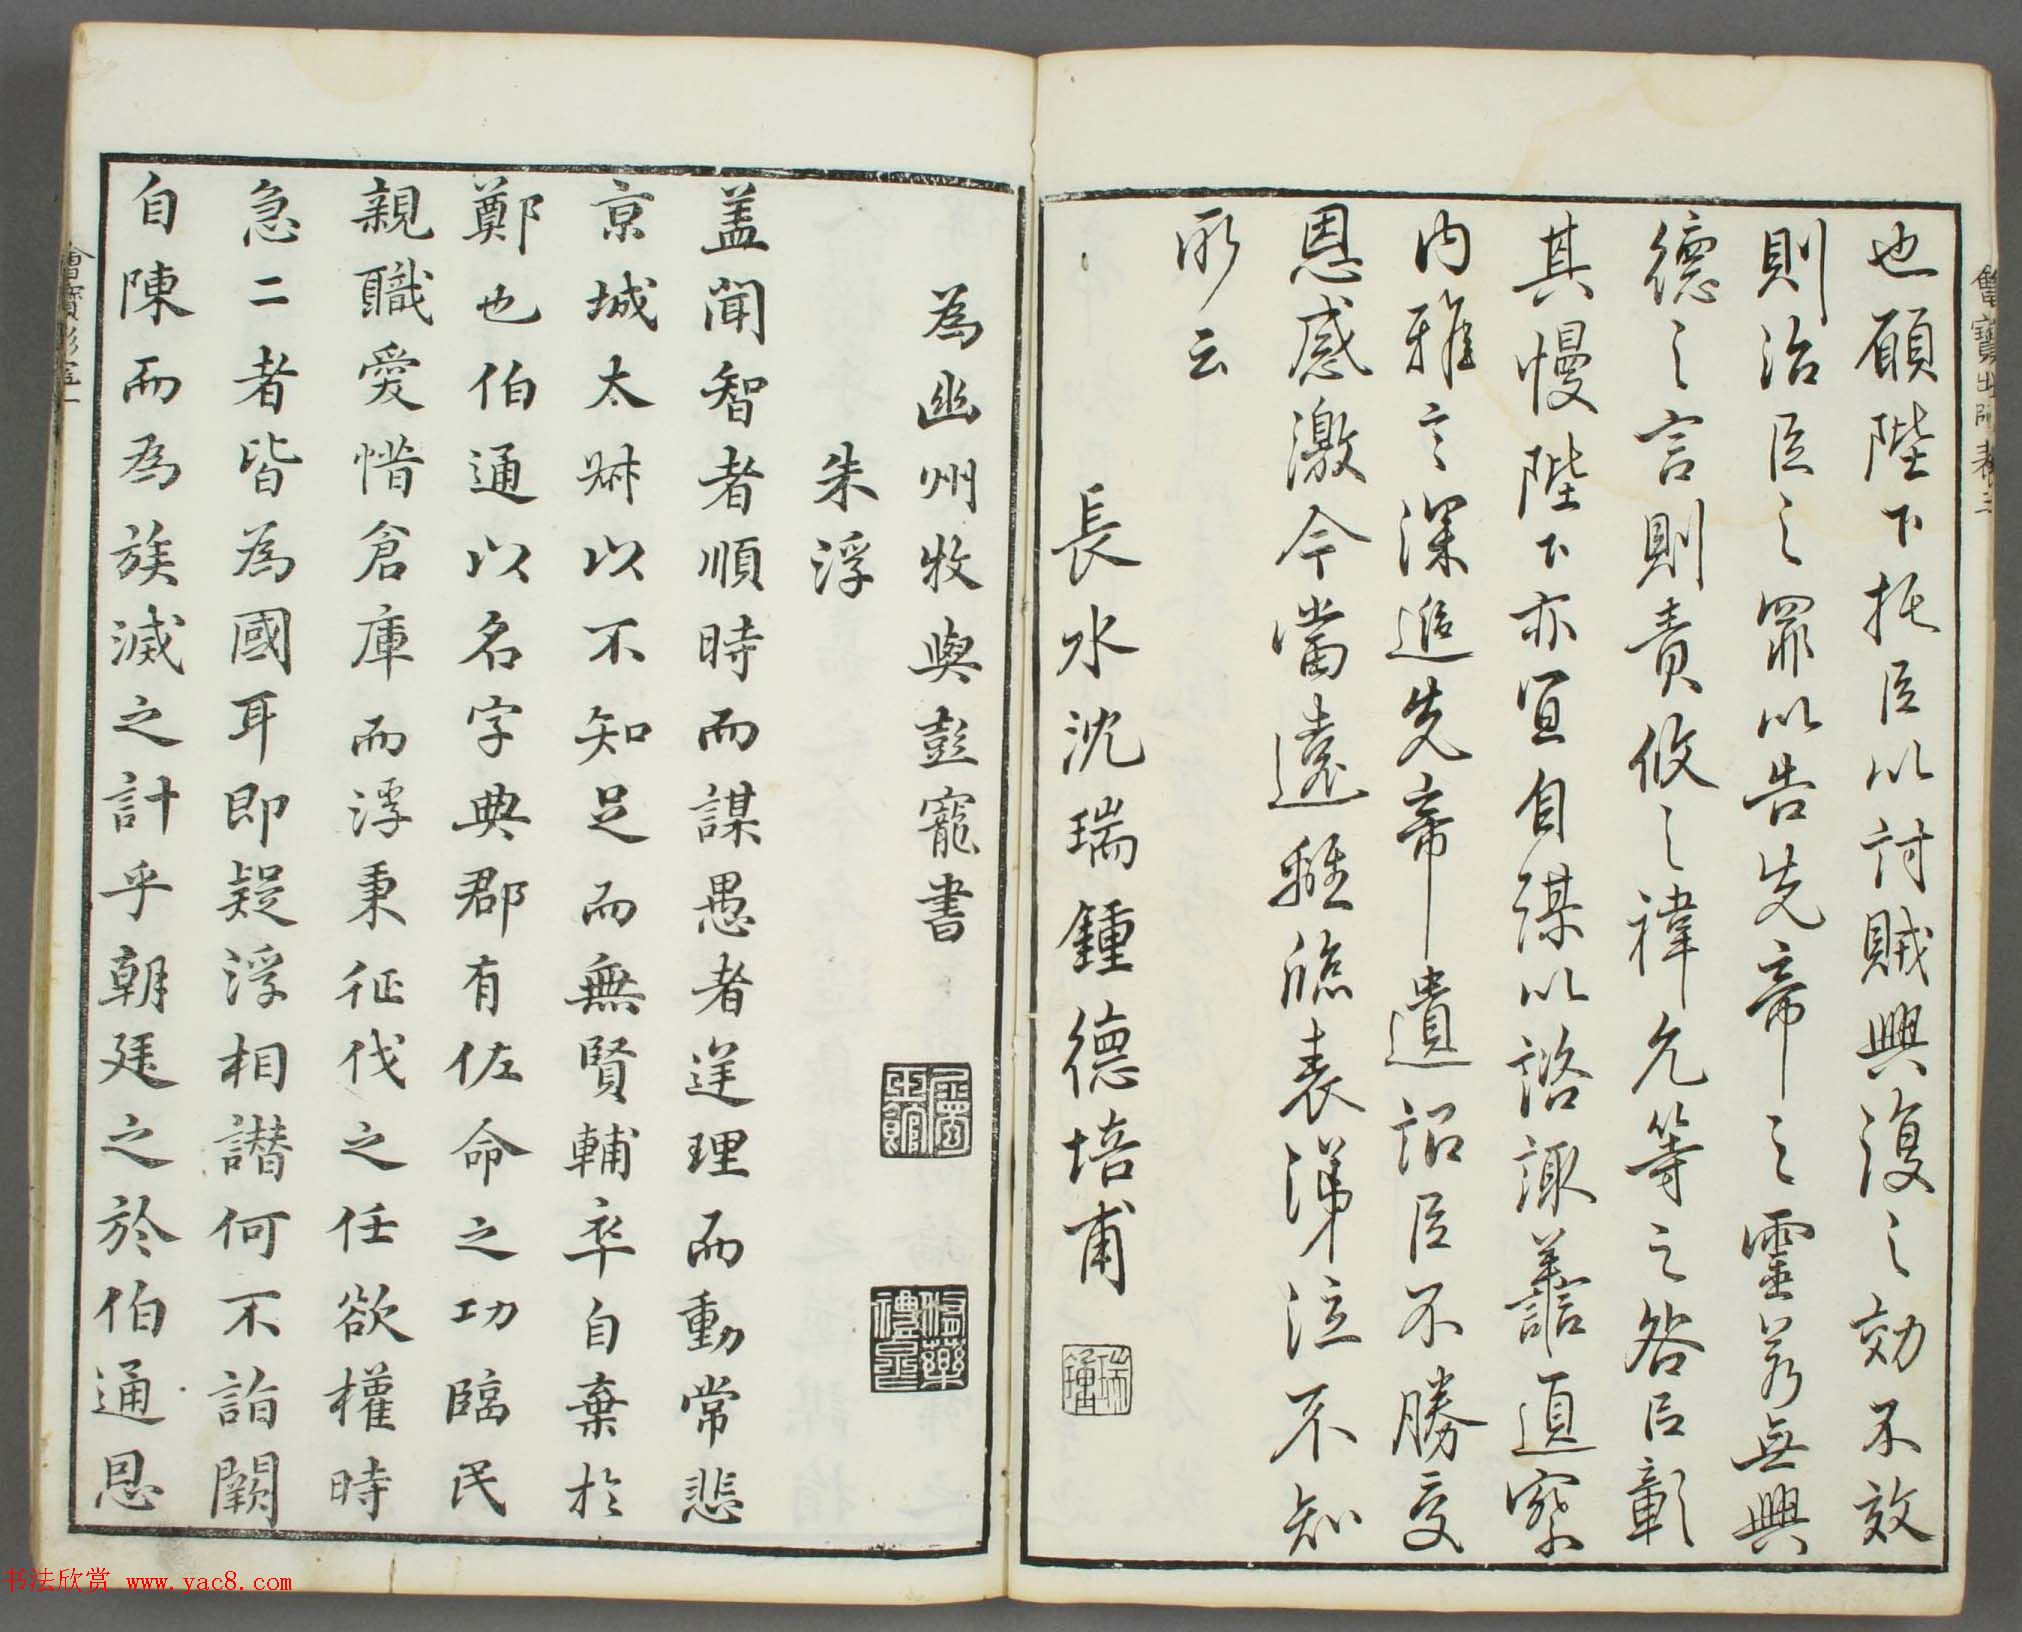 也願陛下托臣以討賊興復之効不效
則治臣之罪以告先帝之靈若無興
德之言則責攸之禕允等之咎臣彰
其慢陛下亦宜自謀以諮諏善道察
內雅言深追先帝遺詔臣不勝受
恩感激今當遠離臨表涕泣不知
所云
長水沈瑞鍾德培甫
瑞鍾
為幽州牧與彭寵書
朱浮
盖聞智者順時而謀愚者逆理而動常悲
京城太尗以不知足而無賢輔卒自棄於
鄭也伯通以名字典郡有佐命之功臨民
親職愛惜倉庫而浮秉征伐之任欲權時
急二者皆為國耳即疑浮相譖何不詣闕
自陳而為族滅之計乎朝廷之於伯通恩
书法欣赏 www.yac8.com